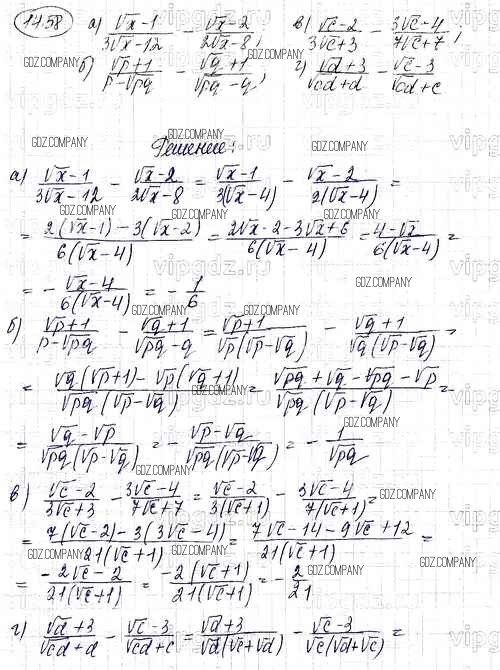 1458 а) (√x-1)/(3√x-12) - (√x-2)/(2√x-8); в) (√c-2)/(3√c+3) - (3√c-4)/(7√c+7);
б) (√p+1)/(p-√pq) - (√q+1)/(√pq-q); г) (√d+3)/(√cd+d) - (√c-3)/(√cd+c)
Решение:
а) (√x-1)/(3√x-12) - (√x-2)/(2√x-8) = (√x-1)/(3(√x-4)) - (√x-2)/(2(√x-4)) =
= (2(√x-1)-3(√x-2))/(6(√x-4)) = (2√x-2-3√x+6)/(6(√x-4)) = (4-√x)/(6(√x-4)) =
= - (√x-4)/(6(√x-4)) = - 1/6
б) (√p+1)/(p-√pq) - (√q+1)/(√pq-q) = (√p+1)/(√p(√p-√q)) - (√q+1)/(√q(√p-√q)) =
= (√q(√p+1)-√p(√q+1))/(√pq(√p-√q)) = (√pq+√q-√pq-√p)/(√pq(√p-√q)) =
= (√q-√p)/(√pq(√p-√q)) = - (√p-√q)/(√pq(√p-√q)) = - 1/√pq
в) (√c-2)/(3√c+3) - (3√c-4)/(7√c+7) = (√c-2)/(3(√c+1)) - (3√c-4)/(7(√c+1)) =
= (7(√c-2)-3(3√c-4))/(21(√c+1)) = (7√c-14-9√c+12)/(21(√c+1)) =
= (-2√c-2)/(21(√c+1)) = (-2(√c+1))/(21(√c+1)) = - 2/21
г) (√d+3)/(√cd+d) - (√c-3)/(√cd+c) = (√d+3)/(√d(√c+√d)) - (√c-3)/(√c(√d+√c)) =